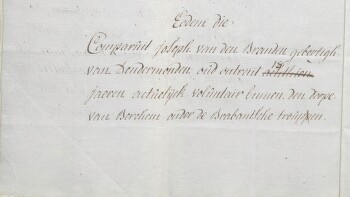 Eodem die
Comparuit Joseph van den Branden gebortigh
van Dendermonden, oud ontrent 19
jaeren actuelijk voluntair binnen den dorpe
van Berchem onder de Brabantsche trouppen.